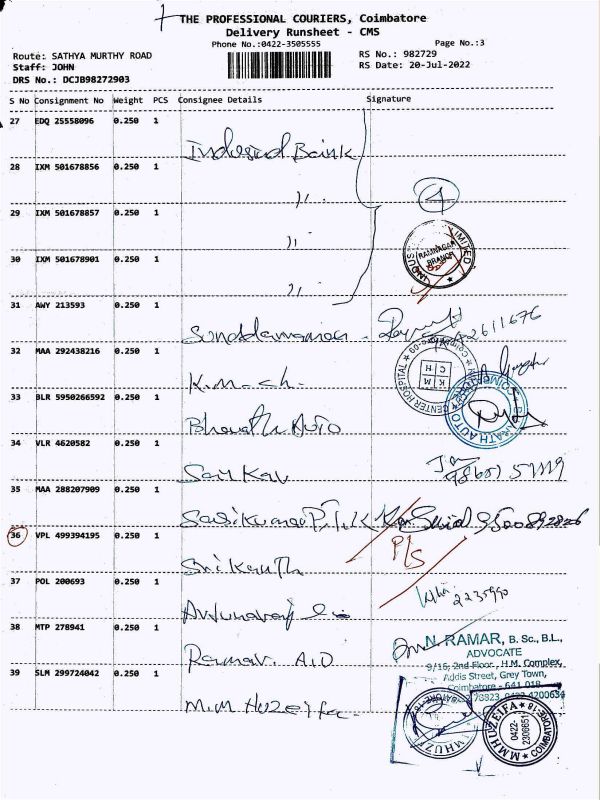 THE PROFESSIONAL COURIERS, Coimbatore
Delivery Runsheet - CMS
Phone No.:0422-3505555
Page No.:3
Route: SATHYA MURTHY ROAD
Staff: JOHN
DRS No.: DCJB98272903
RS No.: 982729
RS Date: 20-Jul-2022
S No Consignment No Weight PCS Consignee Details Signature
27 EDQ 25558096 0.250 1
Indusind Bank
28 IXM 501678856 0.250 1
29 IXM 501678857 0.250 1
30 IXM 501678901 0.250 1
LIMITED
RAMNAGAR
BRANCH
INDUS
31 AWY 213593 0.250 1
32 MAA 292438216 0.250 1
K.M.ch.
CENTER HOSPITAL
K M
C H
33 BLR 5950266592 0.250 1
Bharath Auto
34 VLR 4620582 0.250 1
35 MAA 288207909 0.250 1
36 VPL 499394195 0.250 1
P/S
Srikanth
37 POL 200693 0.250 1
2235990
38 MTP 278941 0.250 1
Raman. A.D
N. RAMAR, B. Sc., B.L.,
ADVOCATE
9/16, 2nd Floor, H.M. Complex,
Addis Street, Grey Town,
Coimbatore - 641 018
39 SLM 299724042 0.250 1
M.M Huzeifa
M M HUZEIFA
0422-
2306651
COIMBATORE-18